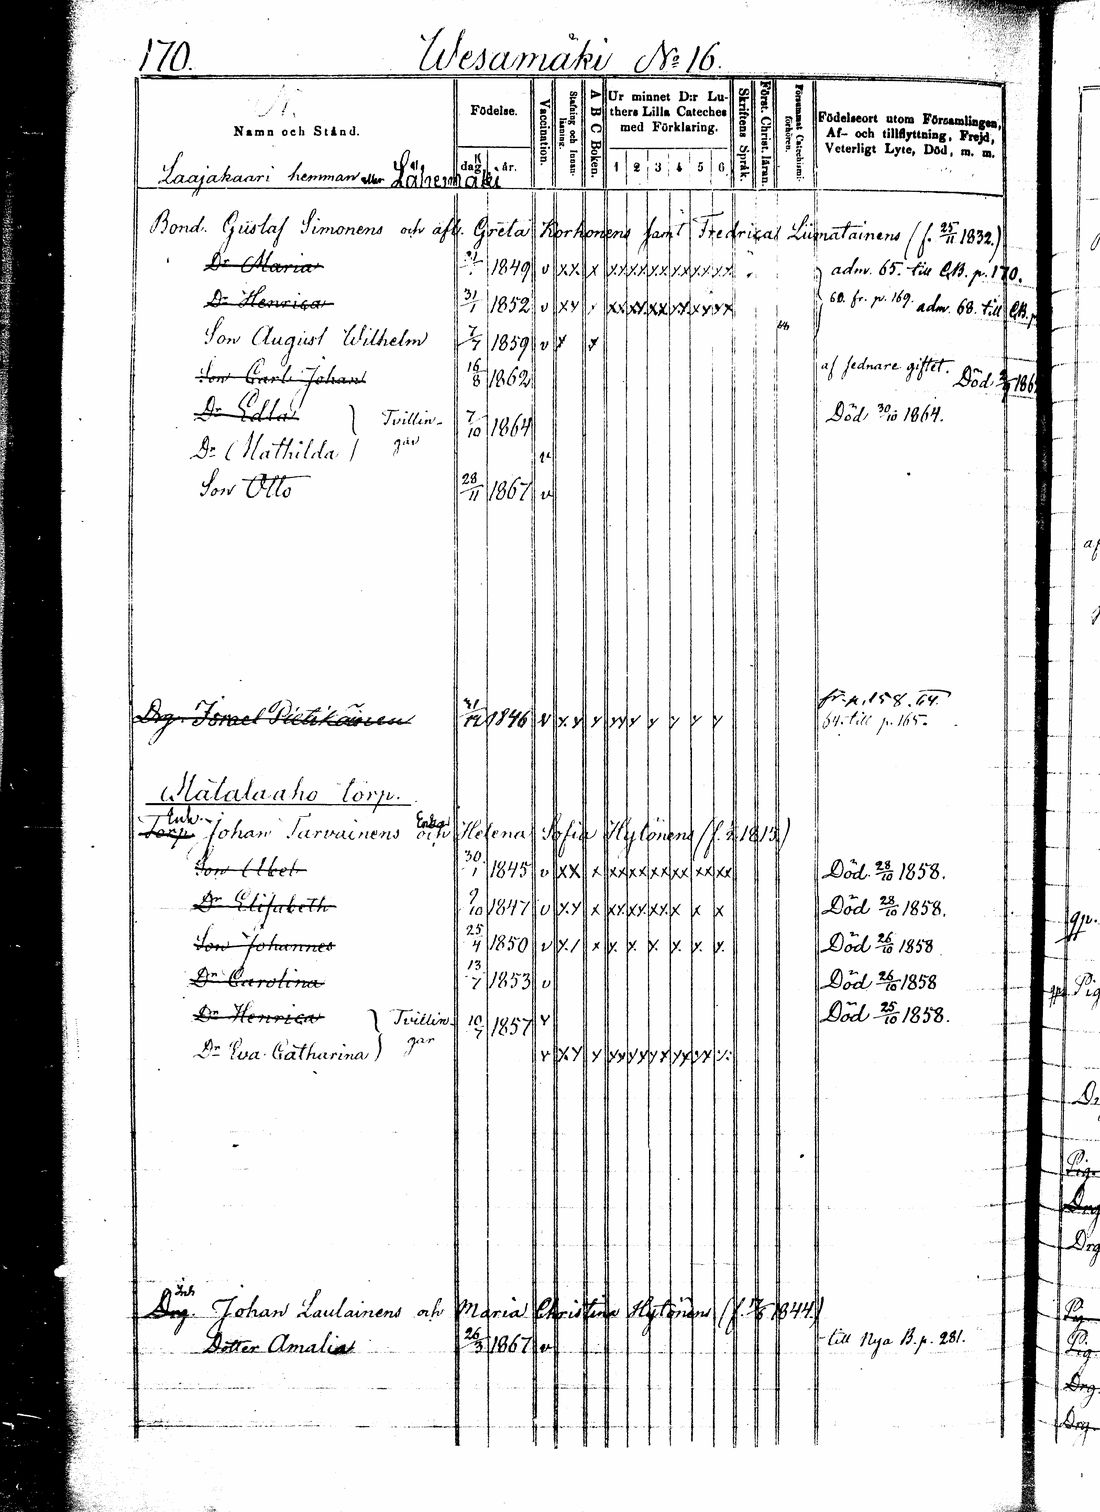 170. Wesamäki No 16.
Namn och Stånd.
Födelse.
dag. år.
Vaccination.
Stafning och Innanläsning.
A B C Boken.
Ur minnet D:r Luthers Lilla Cateches med Förklaring.
1 2 3 4 5 6
Skriftens Språk.
Först. Christ. läran.
Försummat Catechismiförhören.
Födelseort utom Församlingen,
Af- och tillflyttning, Frejd,
Veterligt Lyte, Död, m. m.
Laajakaari hemman eller Lähemäki
Bond. Gustaf Simonens och afl. Greta Korhonens samt Fredrica Liimatainens (f. 25/11 1832.)
Dr Maria 1849 v xx x xx xx xx xx xx xx adm. 65. till C.B. p. 170.
Dr Henrica 31/1 1852 v xy 60. fr. p. 169. adm. 68. till C.B. p.
Son August Wilhelm 7/7 1859 v
Son Carl Johan 16/8 1862 af sednare giftet. Död
Dr Edla Tvillin- 7/10 1864 Död 30/10 1864.
Dr Mathilda gar v
Son Otto 28/11 1867 v
Drg. Israel Pietikäinen 1846 v fr. p. 158. 64.
64. till p. 165.
Mätalaaho torp.
Torp. Johan Tarvainens och Enka Helena Sofia Hytönens (f. 1815.)
Son Abel 30/1 1845 v xx x xx xx xx xx xx xx Död 28/10 1858.
Dr Elisabeth 9/10 1847 v xy x Död 28/10 1858.
Son Johannes 25/4 1850 v x/ x x x x x x x Död 26/10 1858
Dr Carolina 13/7 1853 v Död 26/10 1858
Dr Henrica Tvillin- 10/7 1857 Död 25/10 1858.
Dr Eva Catharina gar
Drg. Inh Johan Laulainens och Maria Christina Hytönens (f. 1844.)
Dotter Amalia 26/3 1867 v till Nya B. p. 281.